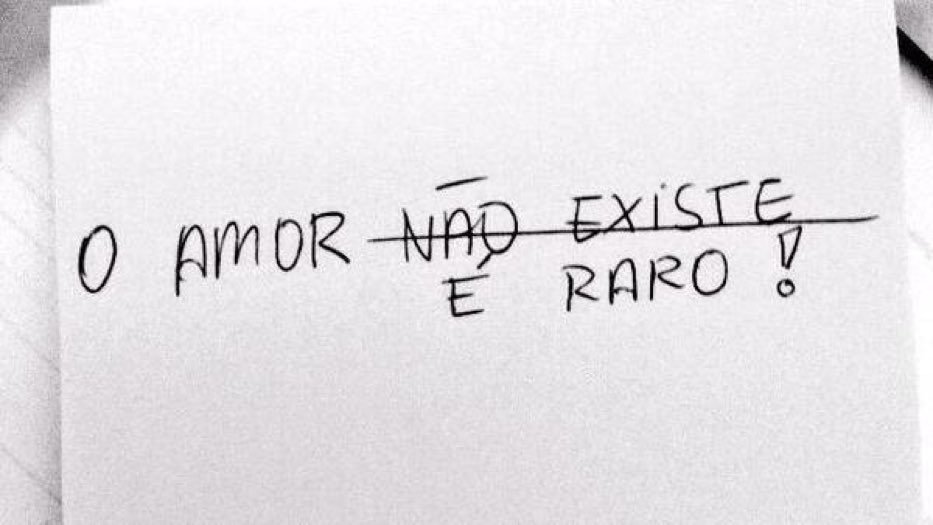 O AMOR NÃO EXISTE
É RARO!